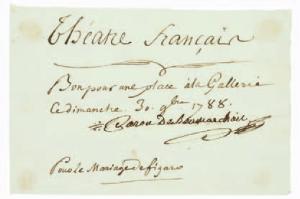 Théatre français
Bon pour une place à la Gallerie
ce dimanche 30. 9bre 1788.
Caron De Beaumarchais
Pour le Mariage de figaro